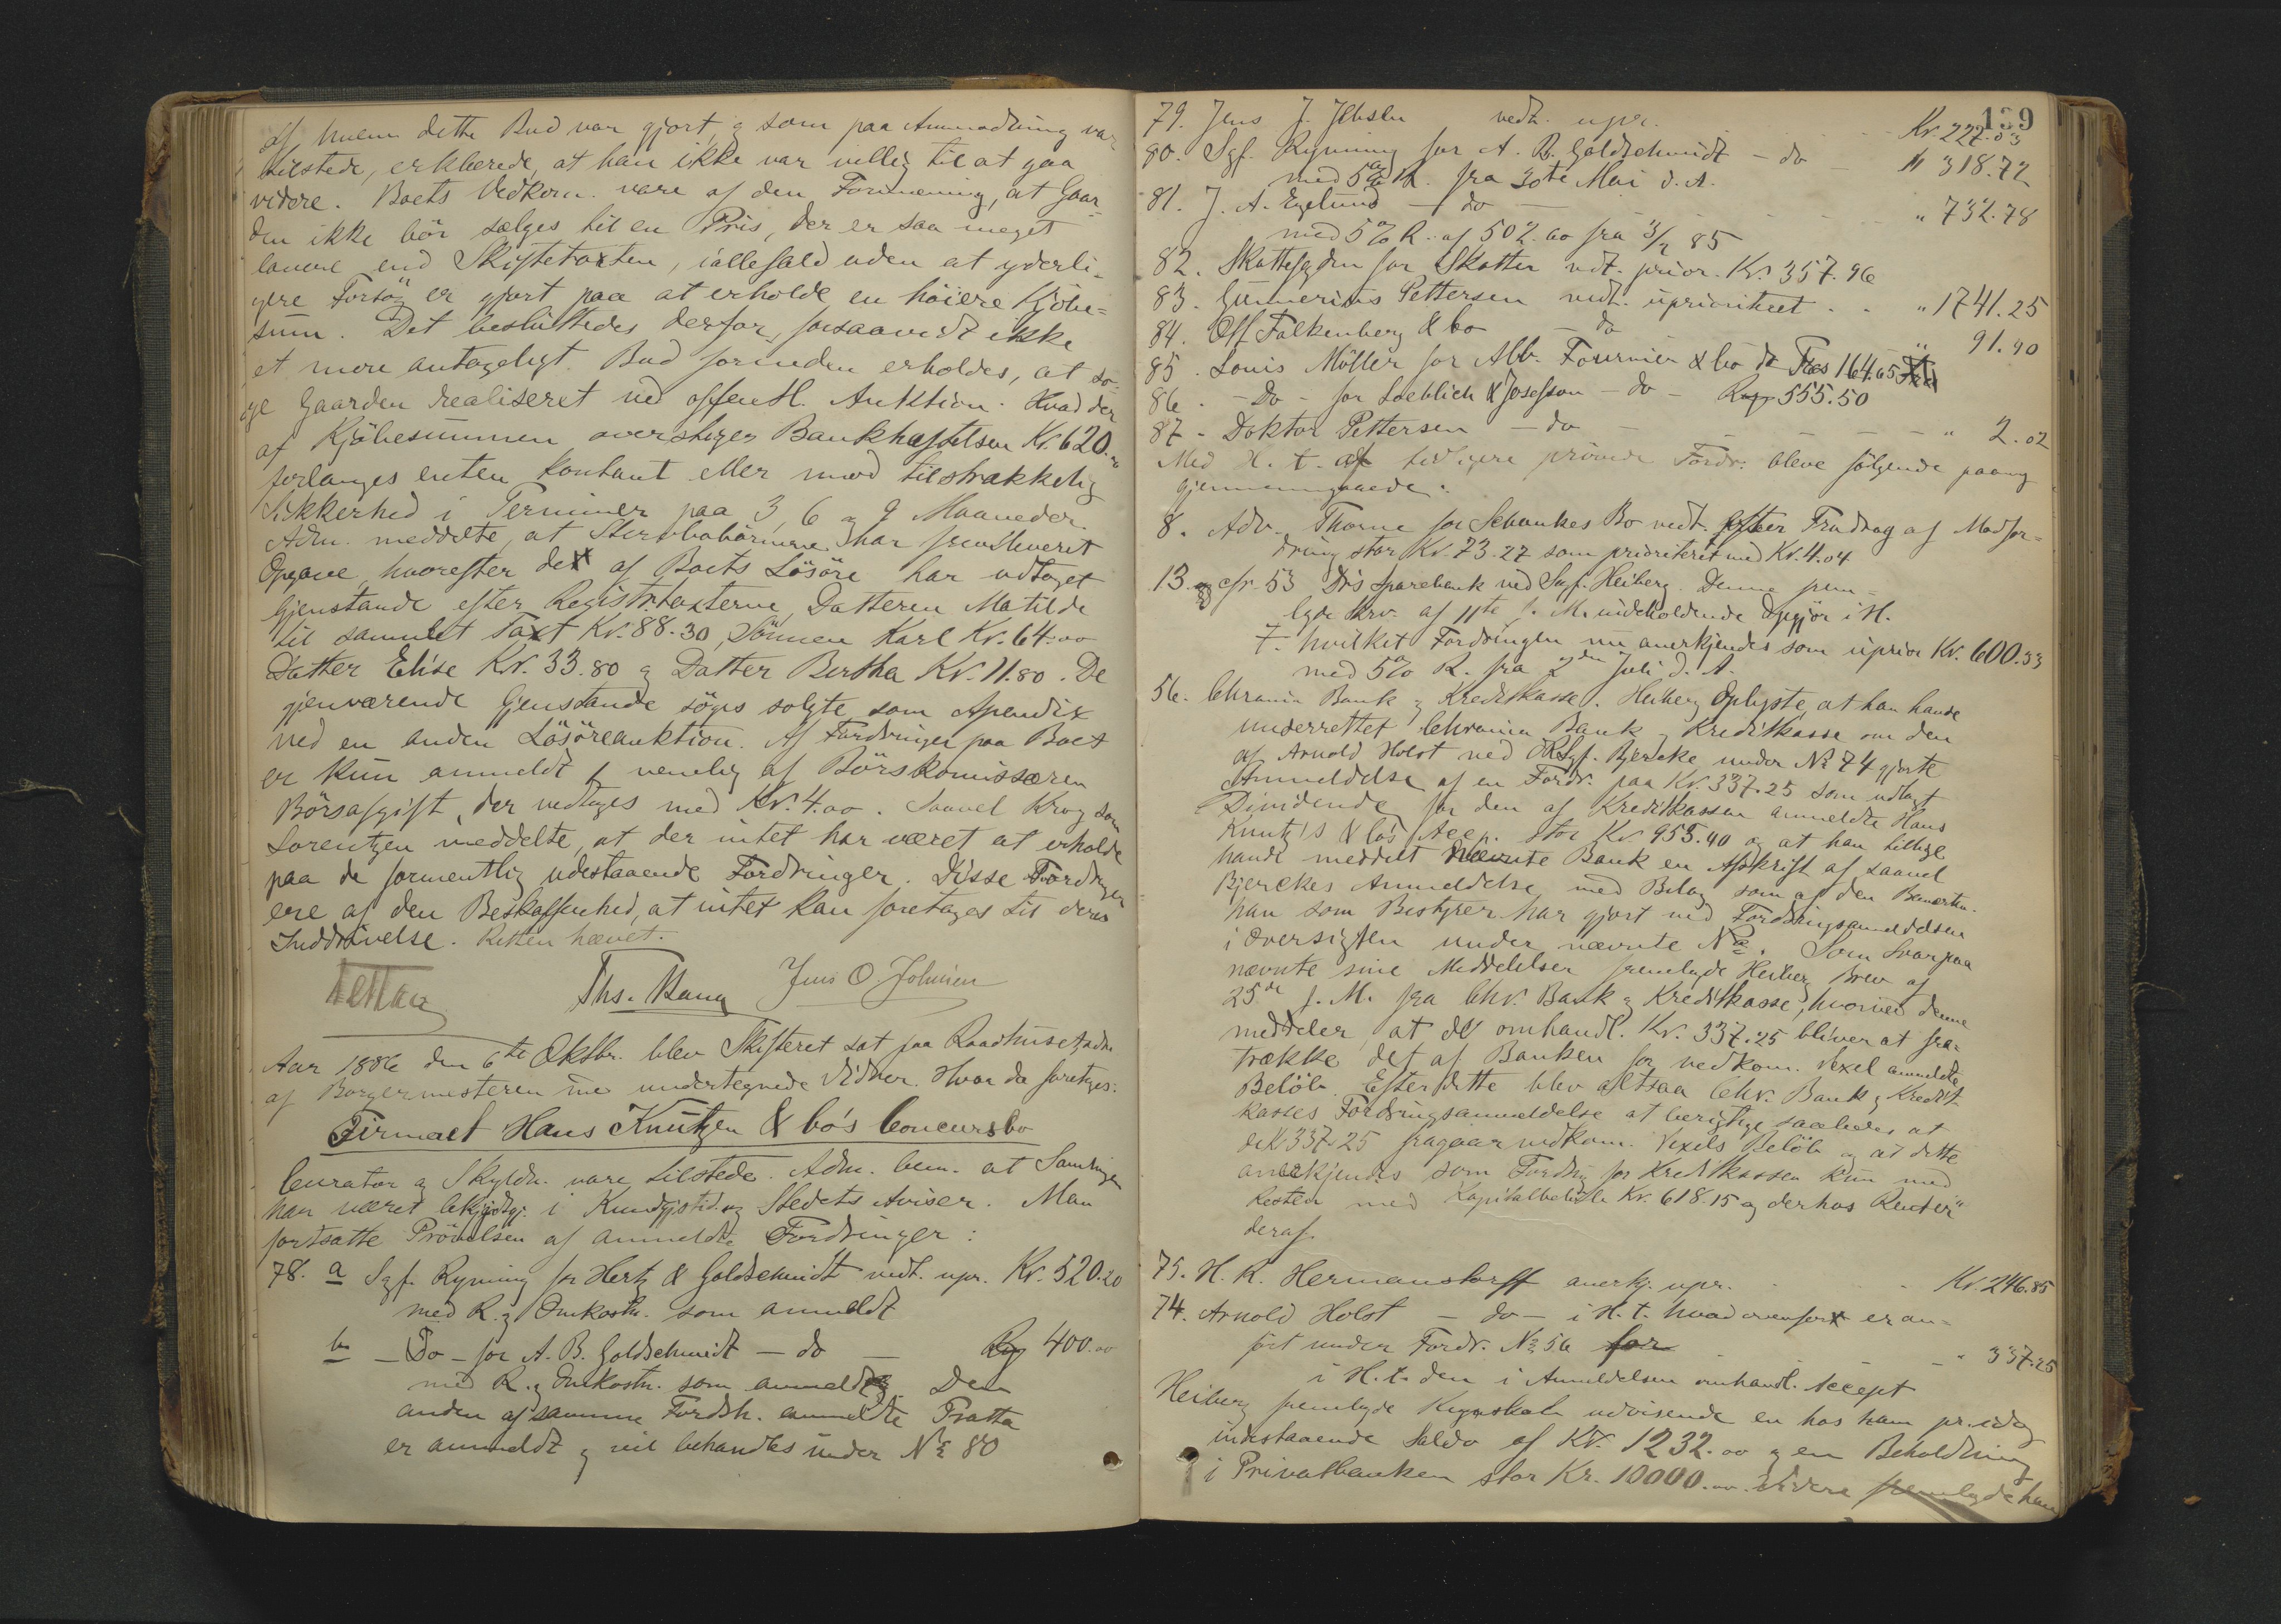 af hvem dette Bud var gjort, og som paa Anmodning var
tilstede, erklærede, at han ikke var villig til at gaa
videre. Boets Vedkom. vare af den Formening, at Gaar-
den ikke bör sælges til en Pris, der er saa meget
lavere end Skiftetaxten, iallefald uden at yderli-
gere Forsög er gjort paa at erholde en höiere Kjöbe-
sum. Det besluttedes derfor, forsaavidt ikke
et mere antageligt Bud forinden erholdes, at sö-
ge Gaarden realiseret ved offentl. Auktion. Hvad der
af Kjöbesummen overstiger Bankhæftelsen Kr. 620.00
forlanges enten kontant eller mod tilstrækkelig
Sikkerhed i Terminer paa 3, 6 og 9 Maaneder.
Adm. meddelte, at Stervbobörnene har fremleveret
Opgave, hvorefter det af Boets Lösöre har udtaget
Gjenstande efter Registr.taxterne, Datteren Matilde
til samlet Taxt Kr. 88.30, Sönnen Karl Kr. 64.00
Datter Elise Kr. 33.80 og Datter Bertha Kr. 11.80. De
gjenværende Gjenstande söges solgte som Apendix
ved en anden Lösöreauktion. Af Fordringer paa Boet
er kun anmeldt 1 nemlig af Börskomissæren
Börsafgift, der vedtages med Kr. 4.00. Saavel Krog som
Lorentzen meddelte, at der intet har været at erholde
paa de formentlig udestaaende Fordringer. Disse Fordringer
ere af den Beskaffenhed, at intet kan foretages til deres
Inddrivelse. Retten hævet.
Ths. Bang Jens O Johnsen
Aar 1886 den 6te Oktbr. blev Skifteret sat paa Raadhuset
af Borgermesteren med undertegnede Vidner. Hvor da foretages:
Firmaet Hans Knutzen & Co's Concursbo
Curator og Skyldn. vare tilstede. Adm. bem. at Samlingen
har været bekjendtgj. i Kundgjstid. og Stedets Aviser. Man
fortsatte Prövelsen af anmeldte Fordringer:
78. a Sgf. Ryning for Hertz & Goldschmidt vedt. upr. Kr. 520.20
med R. og Omkostn. som anmeldt
b - Do - for A. B. Goldschmidt - do - 400.00
med R. og Omkostn. som anmeldt. Den
anden af samme Fordsh. anmeldte Tratta
er anmeldt og vil behandles under No 80
139
79. Jens J. Jebsen vedt. upr. Kr. 227.03
80. Sgf. Ryning for A. B. Goldschmidt - do " 318.72
med 5% R. fra 30te Mai d. A.
81. J. A. Egelund - do - " 732.78
med 5% R. af 502.60 fra 3/2 85
82. Skattefgden for Skatter vedt. prior. Kr. 357.96
83. Gunnerius Pettersen vedt. uprioriteret . . " 1741.25
84. Off Falkenberg & Co - do " 91.90
85. Louis Möller for Alb. Fournier & Co do Frcs 164.65
86. - Do - for Loeblich & Josefson - do - 555.50
87 - Doktor Pettersen - do - " 2.02
Med H. t. af tidligere prövede Fordr. bleve fölgende paany
gjennemgaaede:
8. Adv. Thorne for Schankes Bo vedt. efter Fradrag af Modfor-
dring stor Kr. 73.27 som prioriteret med Kr. 4.04
13 og cfr. 53 D's Sparebank ved Sagf. Heiberg. Denne frem-
lgde Skrv. af 11te f. M. indeholdende Opgjör i H.
t. hvilket Fordringen nu anerkjendes som uprior Kr. 600.33
med 5% R. fra 2den Juli d. A.
56. Chrania Bank og Kreditkasse. Heiberg oplyste, at han havde
underrettet Chrania Bank og Kreditkasse om den
af Arnold Holst ved ORSgf. Bjercke under No 74 gjorte
Anmeldelse af en Fordr. paa Kr. 337.25 som udlagt
Dividende for den af Kreditkassen anmeldte Hans
Knutzens & Co's Accp. stor Kr. 955.40 og at han tillige
havde meddelt nævnte Bank en Afskrift af saavel
Bjerckes Anmeldelse med Bilag som af den Bemærkn.
han som Bestyrer har gjort ved Fordringsanmeldelsen
i Oversigten under nævnte No. Som Svar paa
nævnte sine Meddelelser fremlagde Heiberg Brev af
25de f. M. fra Chr. Bank og Kreditkasse, hvorved denne
meddeler, at de omhandl. Kr. 337.25 bliver at fra-
trække det af Banken for vedkom. Vexel anmeldte
Belöb. Efter dette blev altsaa Chr. Bank og Kredit-
kasses Fordringsanmeldelse at berigtige saaledes at
de Kr 337.25 fragaar vedkom. Vexels Belöb og at dette
anerkjendes som Fordring for Kreditkassen kun med
Resten med Kapitalbelöb Kr. 618.15 og derhos Renter
deraf.
75. H. R. Hermanstorff anerkj. upr. Kr. 246.85
74. Arnold Holst - do - i H. t. hvad ovenfor er an-
fört under Fordr. No 56 for - " 337.25
i H. t. den i Anmeldelsen omhandl. Accept
Heiberg fremlagde Regnskab udvisende en hos ham pr. idag
indestaaende Saldo af Kr. 1232.00 og en Beholdning
i Privatbanken stor Kr. 10000.00. Videre fremlagde han